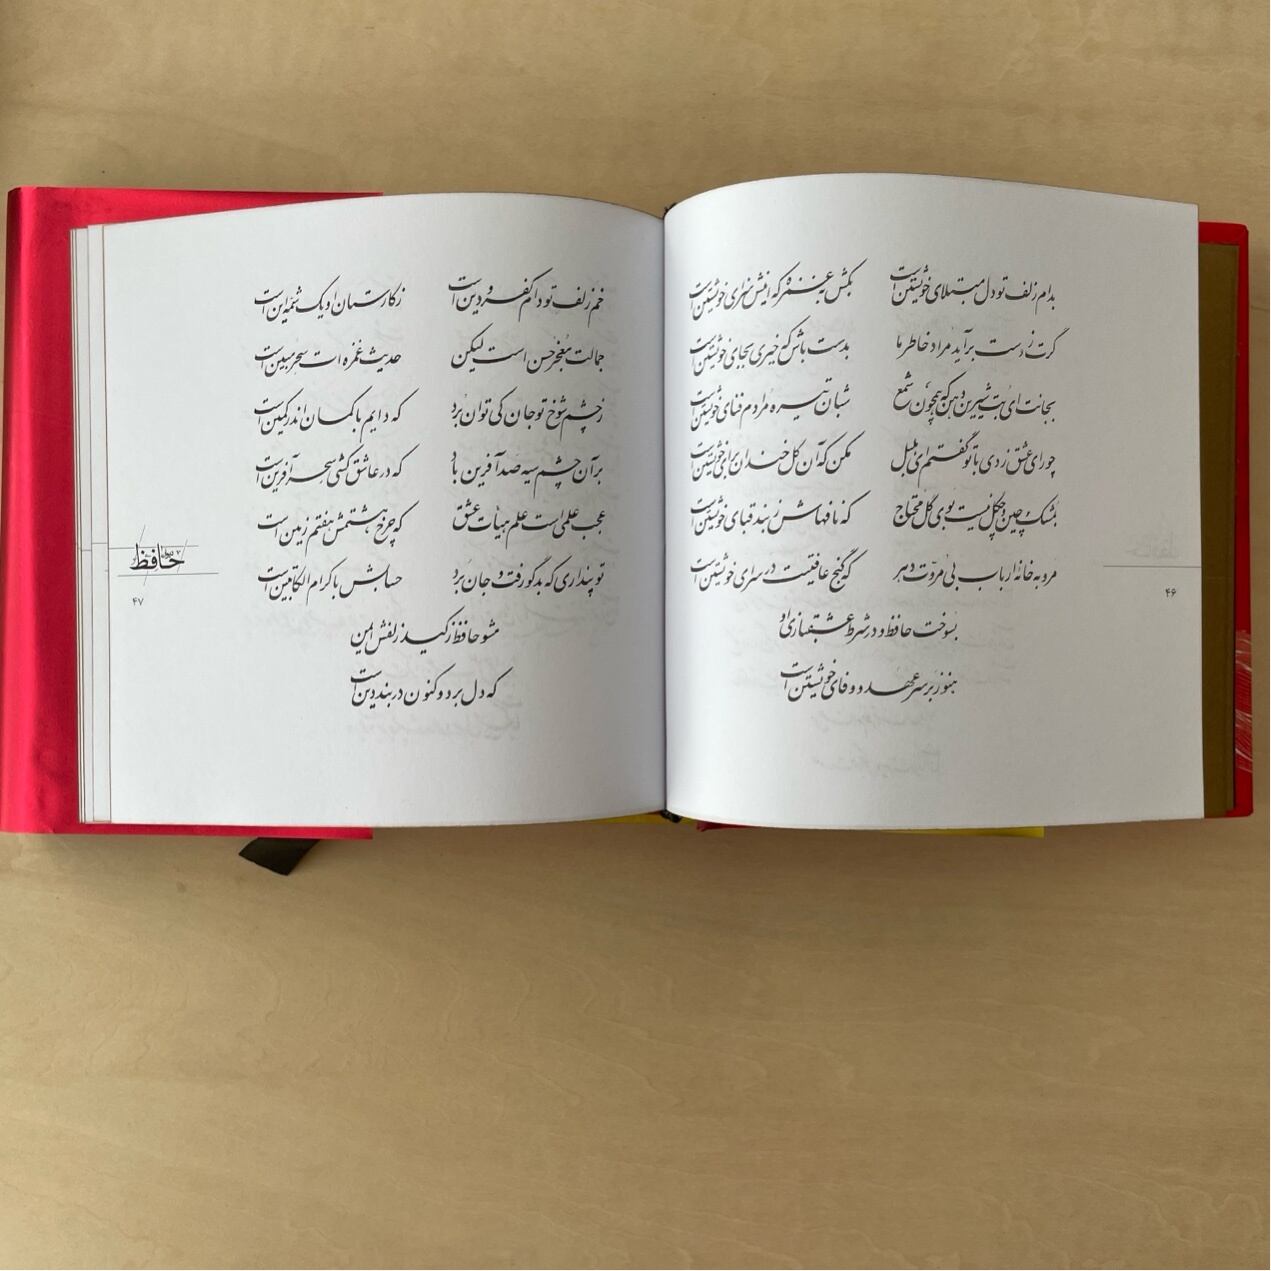 بدام زلف تو دل مبتلای خویشتن است بکش به غمزه که اینش سزای خویشتن است
گرت ز دست برآید مراد خاطر ما بدست باش که خیری بجای خویشتن است
بجانت ای بت شیرین دهن که همچون شمع شبان تیره مرادم فنای خویشتن است
چو رای عشق زدی با تو گفتم ای بلبل مکن که آن گل خندان برای خویشتن است
بمشک چین و چگل نیست بوی گل محتاج که نافهاش ز بند قبای خویشتن است
مرو به خانهٔ ارباب بی مروت دهر که گنج عافیتت در سرای خویشتن است
بسوخت حافظ و در شرط عشقبازی او
هنوز بر سر عهد و وفای خویشتن است
۴۶
خم زلف تو دام کفر و دین است ز کارستان او یک شمه این است
جمالت معجز حسن است لیکن حدیث غمزه ات سحر مبین است
ز چشم شوخ تو جان کی توان برد که دایم با کمان اندر کمین است
بر آن چشم سیه صد آفرین باد که در عاشق کشی سحر آفرین است
عجب علمی است علم هیأت عشق که چرخ هشتمش هفتم زمین است
تو پنداری که بدگو رفت و جان برد حسابش با کرام الکاتبین است
مشو حافظ ز کید زلفش ایمن
که دل برد و کنون در بند دین است
حافظ
۴۷